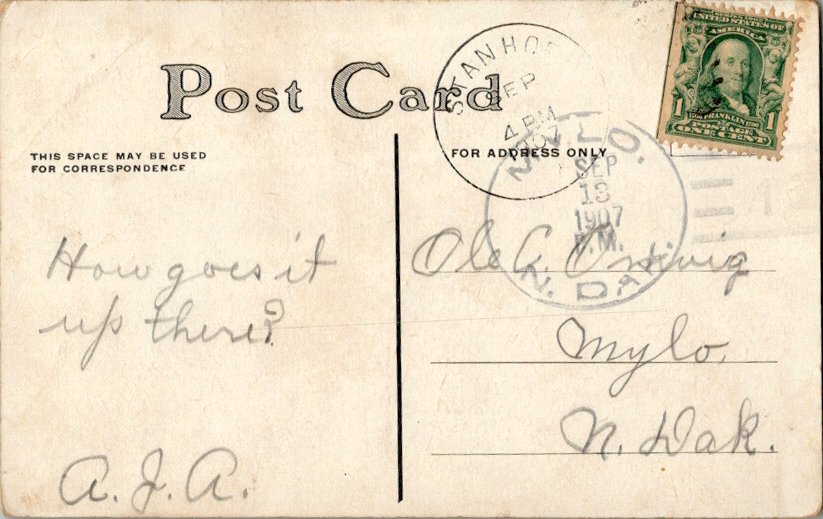 Post Card
THIS SPACE MAY BE USED
FOR CORRESPONDENCE
FOR ADDRESS ONLY
How goes it
up there?
A. J. A.
SEP
4 PM
UNITED STATES OF
AMERICA
1 FRANKLIN 1
POSTAGE
ONE CENT
SEP
13
1907
N. DAK
Ole A.
Mylo,
N. Dak.